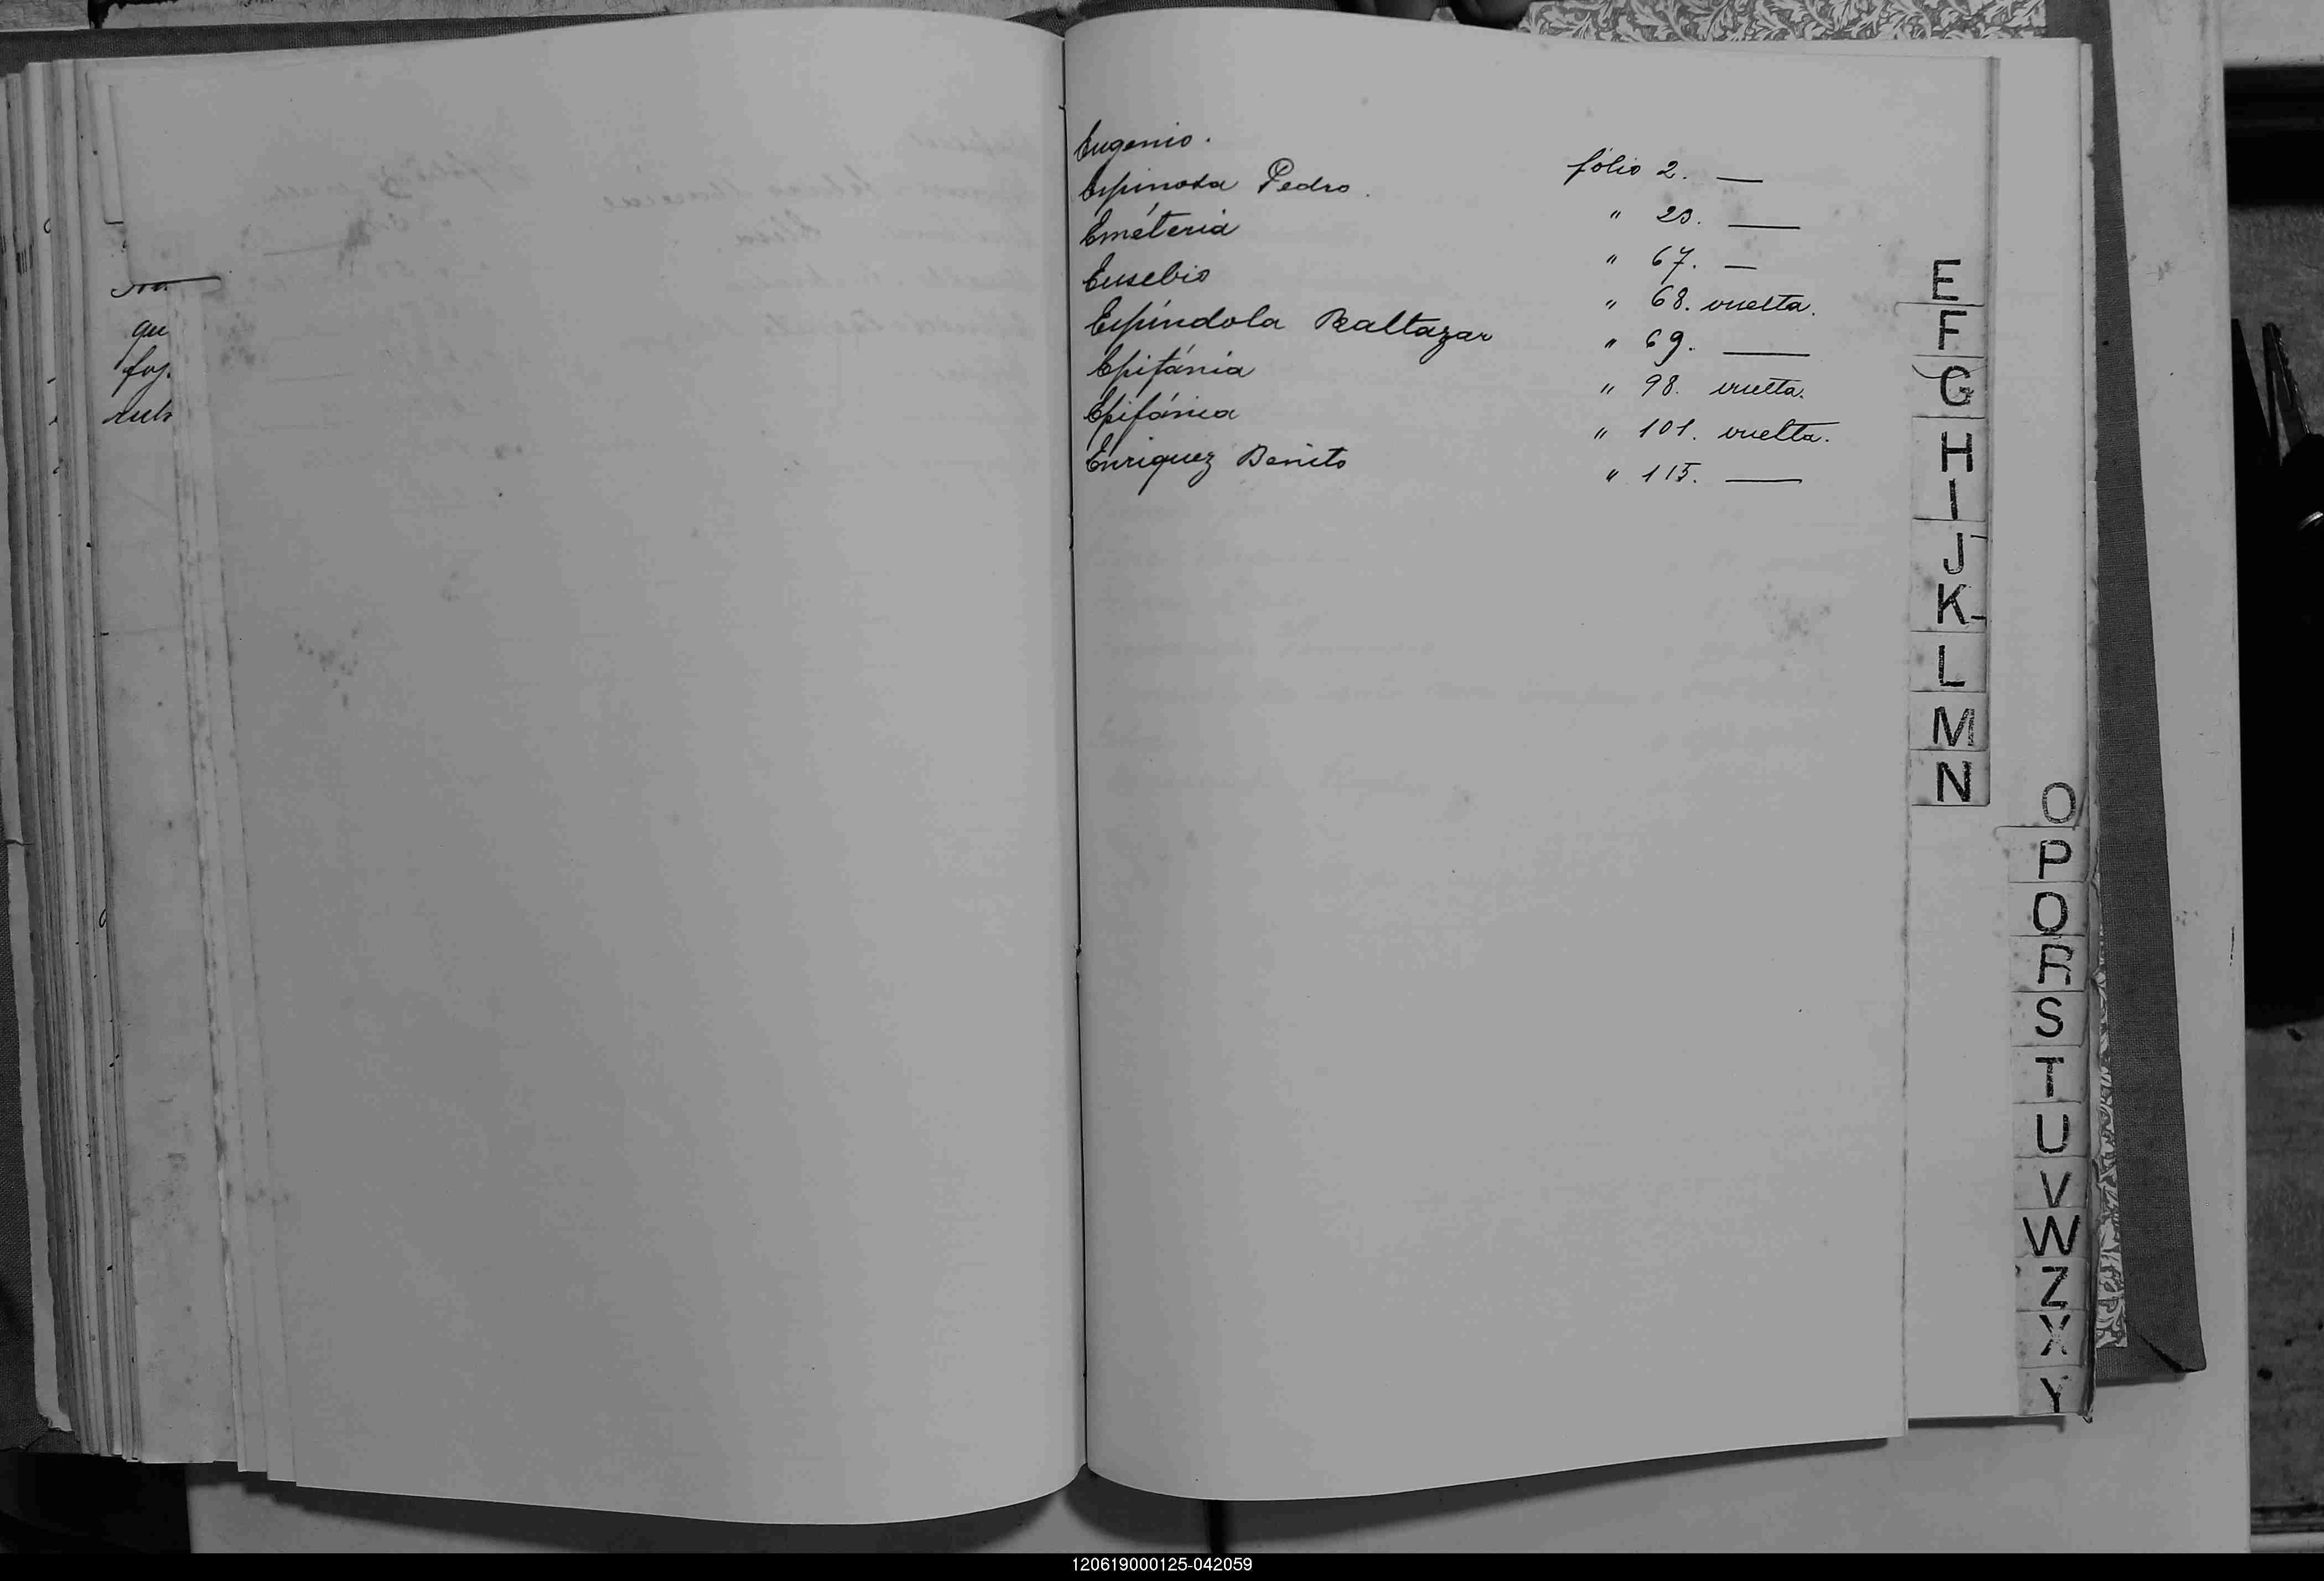 qu
foj.
Eugenio. fólio 2. —
Espinosa Pedro. " 23. —
Emétèria " 67. —
Eusebio " 68. vuelta.
Espíndola Baltazar " 69. —
Epifánia " 98. vuelta.
Epifánia " 101. vuelta.
Enriquez Benito " 115. —
E
F
G
H
I
J
K
L
M
N
O
P
Q
R
S
T
U
V
W
Z
X
Y
120619000125-042059